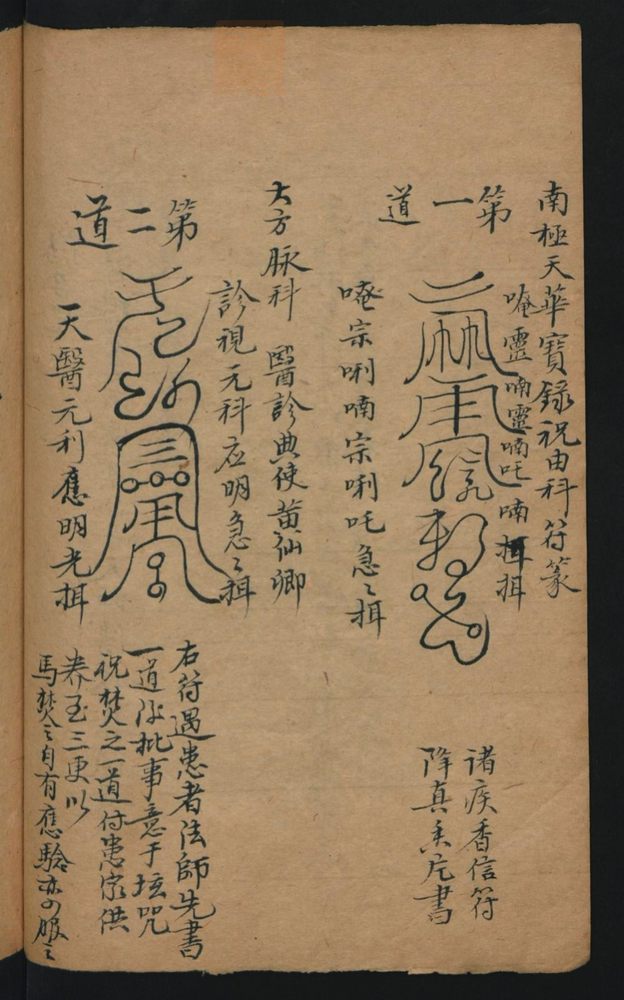 南極天華寶錄祝由科符篆
唵靈喃靈喃吒喃揖揖
第一道
諸疾香信符
降真香片書
唵宗唎喃宗唎吒急〻揖
大方脉科 醫診典使黃仙卿
診視元科应明急〻揖
第二道
天醫元利應明光揖
右符遇患者法師先書
一道後批事意于坛咒
祝焚之一道付患家供
养至三更以
馬焚之自有應驗亦可服之